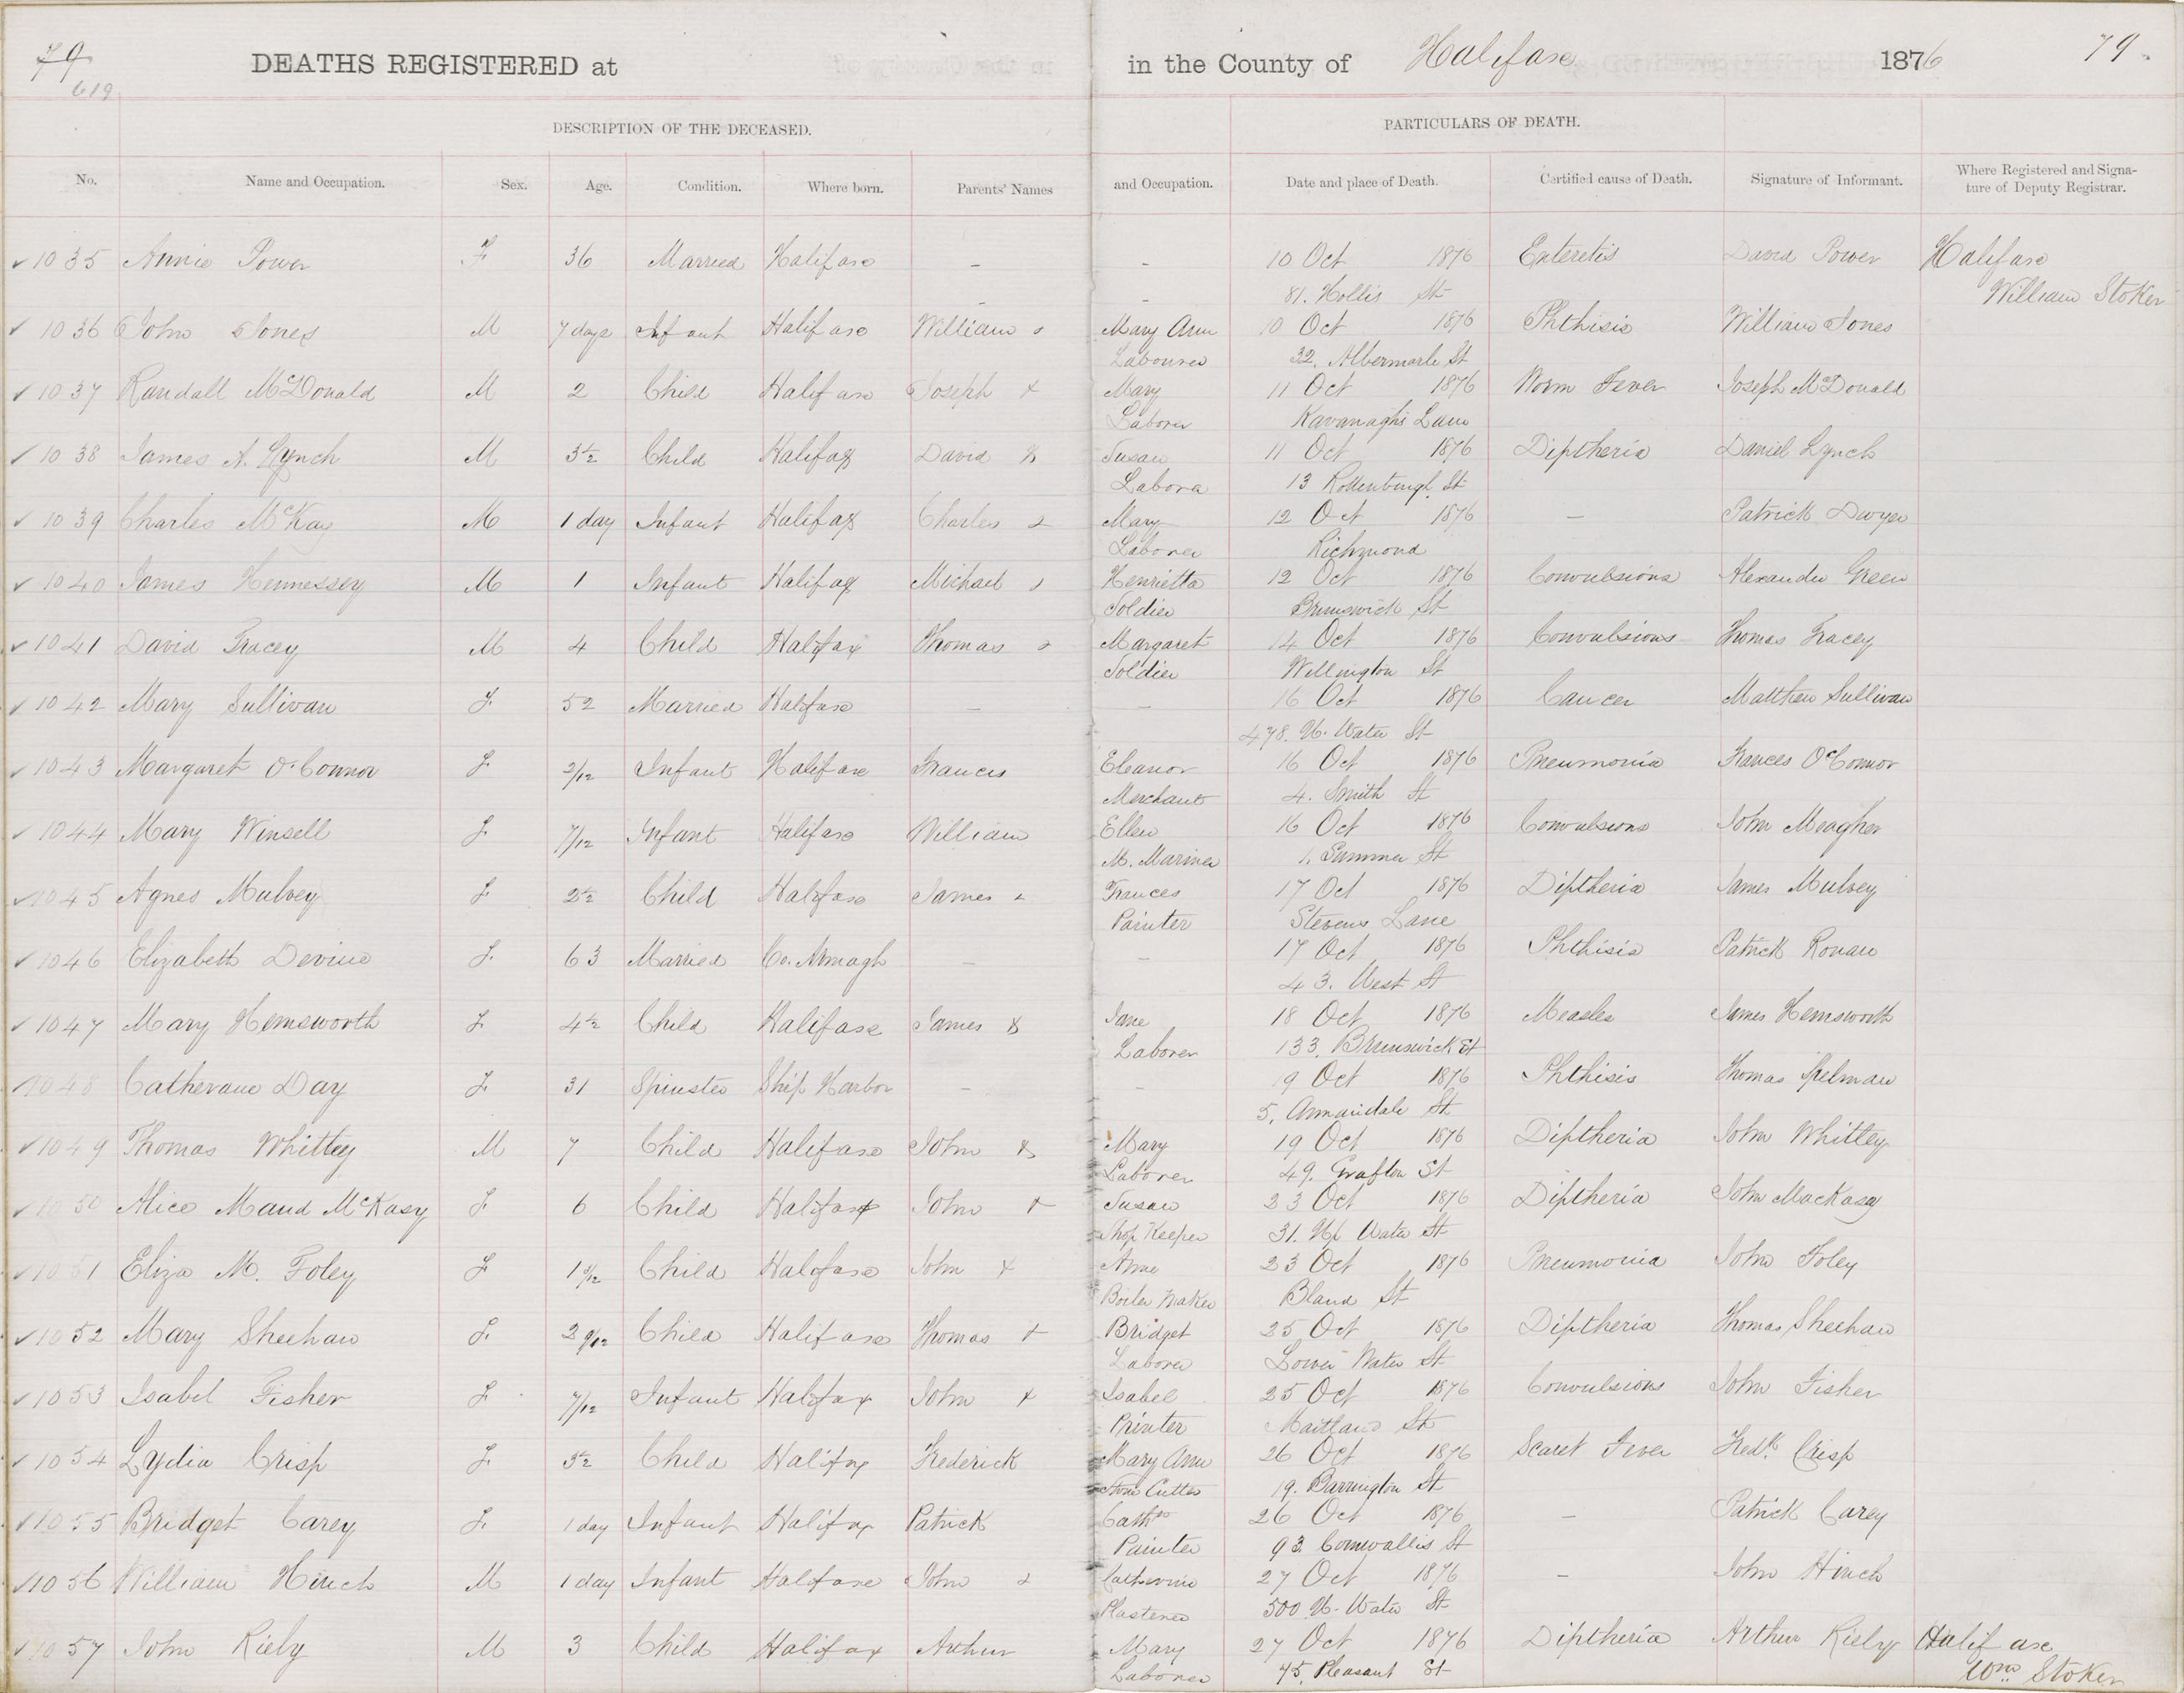 79
619
DEATHS REGISTERED at in the County of Halifax 1876 79
DESCRIPTION OF THE DECEASED. PARTICULARS OF DEATH.
No. Name and Occupation. Sex. Age. Condition. Where born. Parents' Names and Occupation. Date and place of Death. Certified cause of Death. Signature of Informant. Where Registered and Signa-
ture of Deputy Registrar.
1035 Annie Power F 36 Married Halifax – – 10 Oct 1876 Enteretis David Power Halifax
– – 81. Hollis St William Stoker
1036 John Jones M 7 days Infant Halifax William & Mary Ann 10 Oct 1876 Phthisis William Jones
Labourer 32. Albermarle St
1037 Randall McDonald M 2 Child Halifax Joseph & Mary 11 Oct 1876 Worm Fever Joseph McDonald
Laborer Kavanaghs Lane
1038 James A. Lynch M 3½ Child Halifax David & Susan 11 Oct 1876 Diptheria Daniel Lynch
Laborer 13 St
1039 Charles McKay M 1 day Infant Halifax Charles & Mary 12 Oct 1876 – Patrick Dwyer
Laborer Richmond
1040 James Hennessey M 1 Infant Halifax Michael & Henrietta 12 Oct 1876 Convulsions Alexander Green
Soldier Brunswick St
1041 David Tracey M 4 Child Halifax Thomas & Margaret 14 Oct 1876 Convulsions Thomas Tracey
Soldier Wellington St
1042 Mary Sullivan F. 52 Married Halifax – – 16 Oct 1876 Cancer Matthew Sullivan
478. U. Water St
1043 Margaret O'Connor F 2/12 Infant Halifax Frances Eleanor 16 Oct 1876 Pneumonia Frances O'Connor
Merchant 4. Smith St
1044 Mary Winsell F. 7/12 Infant Halifax William Ellen 16 Oct 1876 Convulsions John Meagher
M. Mariner 1. Summer St
1045 Agnes Mulvey F 2½ Child Halifax James & Frances 17 Oct 1876 Diptheria James Mulvey
Painter Stevens Lane
1046 Elizabeth Devine F. 63 Married Co. Armagh – – 17 Oct 1876 Phthisis Patrick Ronan
43. West St
1047 Mary Hemsworth F 4½ Child Halifax James & Jane 18 Oct 1876 Measles James Hemsworth
Laborer 133. Brunswick St
1048 Catherane Day F. 31 Spinster Ship Harbor – – 9 Oct 1876 Phthisis Thomas Spelman
5. Annandale St
1049 Thomas Whitley M 7 Child Halifax John & Mary 19 Oct 1876 Diptheria John Whitley
Laborer 49. Grafton St
1050 Alice Maud McKasy F. 6 Child Halifax John & Susan 23 Oct 1876 Diptheria John MacKasey
Shop Keeper 31. Up Water St
1051 Eliza M. Foley F Child Halifax John & Anne 23 Oct 1876 Pneumonia John Foley
Boiler Maker Bland St
1052 Mary Sheehan F. 2 9/12 Child Halifax Thomas & Bridget 25 Oct 1876 Diptheria Thomas Sheehan
Laborer Lower Water St
1053 Isabel Fisher F. 7/12 Infant Halifax John & Isabel 25 Oct 1876 Convulsions John Fisher
Printer Maitland St
1054 Lydia Crisp F. Child Halifax Frederick Mary Ann 26 Oct 1876 Scaret Fever Fredk. Crisp
Stone Cutter 19. Barrington St
1055 Bridget Carey F. 1 day Infant Halifax Patrick Cathne 26 Oct 1876 – Patrick Carey
Painter 93. Cornwallis St
1056 William Hinch M 1 day Infant Halifax John & Catherine 27 Oct 1876 – John Hinch
Plasterer 500 U. Water St
1057 John Riely M 3 Child Halifax Arthur Mary 27 Oct 1876 Diptheria Arthur Riely Halifax
Laborer 45. Pleasant St Wm. Stoker